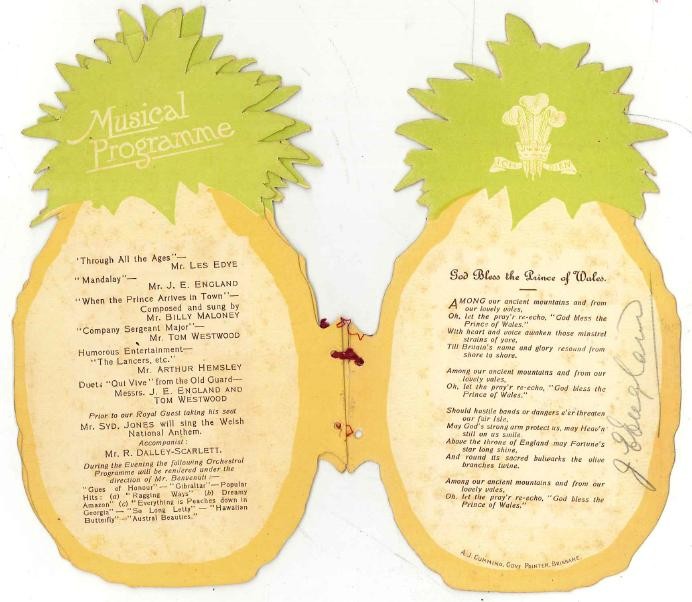 Musical
Programme
"Through All the Ages"—
Mr. LES EDYE
"Mandalay"—
Mr. J. E. ENGLAND
"When the Prince Arrives in Town"—
Composed and sung by
Mr. BILLY MALONEY
"Company Sergeant Major"—
Mr. TOM WESTWOOD
Humorous Entertainment—
"The Lancers, etc."
Mr. ARTHUR HEMSLEY
Duet: "Qui Vive" from the Old Guard—
Messrs. J. E. ENGLAND AND
TOM WESTWOOD
Prior to our Royal Guest taking his seat
Mr. SYD. JONES will sing the Welsh
National Anthem.
Accompanist:
Mr. R. DALLEY-SCARLETT.
During the Evening the following Orchestral
Programme will be rendered under the
direction of Mr. Benvenuti:—
"Gues of Honour"—"Gibraltar"—Popular
Hits: (a) "Ragging Ways" (b) Dreamy
Amazon" (c) "Everything is Peaches down in
Georgia"—"So Long Letty"—"Hawaiian
Butterfly"—"Austral Beauties."
ICH DIEN
God Bless the Prince of Wales.
AMONG our ancient mountains and from
our lovely vales,
Oh, let the pray'r re-echo, "God bless the
Prince of Wales."
With heart and voice awaken those minstrel
strains of yore,
Till Britain's name and glory resound from
shore to shore.
Among our ancient mountains and from our
lovely vales,
Oh, let the pray'r re-echo, "God bless the
Prince of Wales."
Should hostile bands or dangers e'er threaten
our fair Isle,
May God's strong arm protect us, may Heav'n
still on us smile.
Above the throne of England may Fortune's
star long shine,
And round its sacred bulwarks the olive
branches twine.
Among our ancient mountains and from our
lovely vales,
Oh, let the pray'r re-echo, "God bless the
Prince of Wales."
J E England
A. J. CUMMING, GOVT PRINTER, BRISBANE.